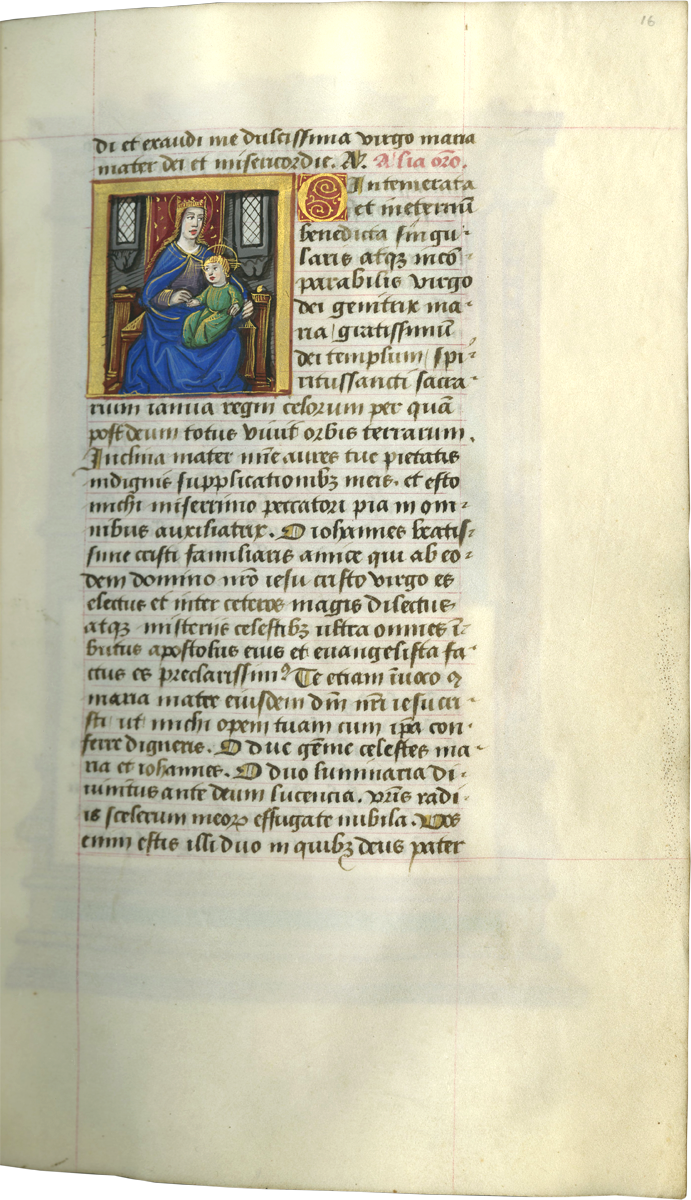 16
di et exaudi me dulcissima virgo maria
mater dei et misericordie. A͞. Alia or͞o.
O Intemerata
et in eternu͞
benedicta singu-
laris atqꝫ inco͞
parabilis virgo
dei genitrix ma-
ria gratissimu͞
dei templum spi-
ritussancti sacra-
rium ianua regni celorum per qua͞
post deum totus vivit orbis terrarum.
Inclina mater mi͞e aures tue pietatis
indignis supplicationibꝫ meis. et esto
michi miserrimo peccatori pia in om-
nibus auxiliatrix. O iohannes beatis-
sime cristi familiaris amice qui ab eo-
dem domino nr͞o iesu cristo virgo es
electus et inter ceteros magis dilectus
atqꝫ misteriis celestibꝫ ultra omnes i͞-
butus apostolus eius et euangelista fa-
ctus es preclarissimꝰ Te etiam i͞uoco cꝫ
maria mater eiusdem dn͞i nr͞i iesu cri-
sti ut michi opem tuam cum ip͞a con-
ferre digneris. O due ge͞me celestes ma-
ria et iohannes. O duo luminaria di-
uinitus ante deum lucencia. vr͞is radi-
is scelerum meoꝝ effugate nubila. Vos
enim estis illi duo in quibꝫ deus pater